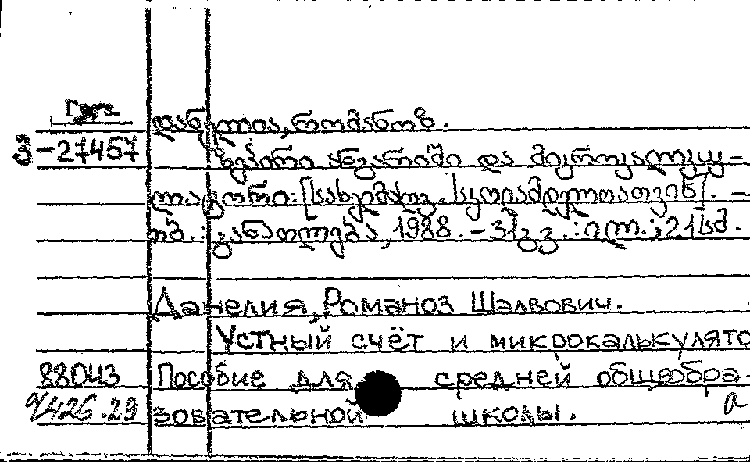 დანელია, რომანოზ.
-27457
ზეპირი ანგარიში და მიკროკალკუ-
ლატორი: [სახელმძღვ. სკოლისათვის]. -
თბ.: განათლება, 1988. - 31გვ.: ილ.; 21სმ.
Данелия, Романоз Шалвович.
Устный счёт и микрокалькулято
88043 Пособие для средней общеобра-
зовательной школы. а